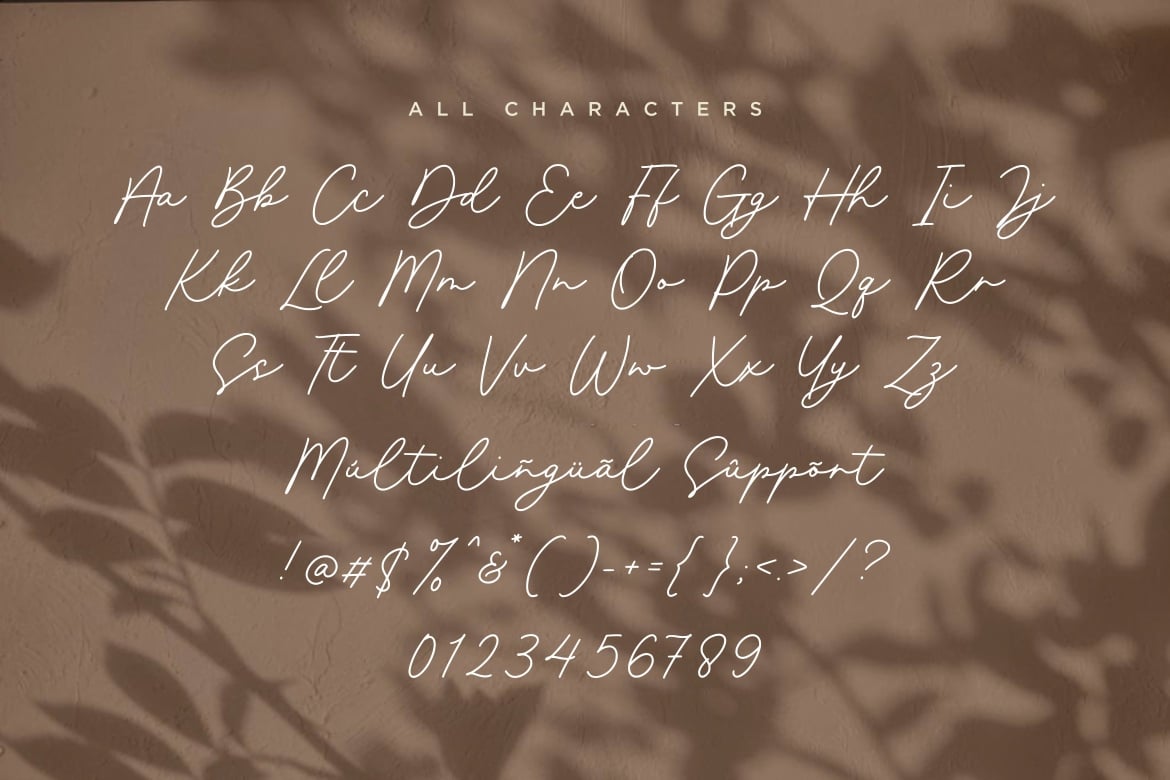 ALL CHARACTERS
Aa Bb Cc Dd Ee Ff Gg Hh Ii Jj
Kk Ll Mm Nn Oo Pp Qq Rr
Ss Tt Uu Vv Ww Xx Yy Zz
Múltiliñgüãl Sûppõrt
!@#$%^&*()-+={};<.>/?
0123456789